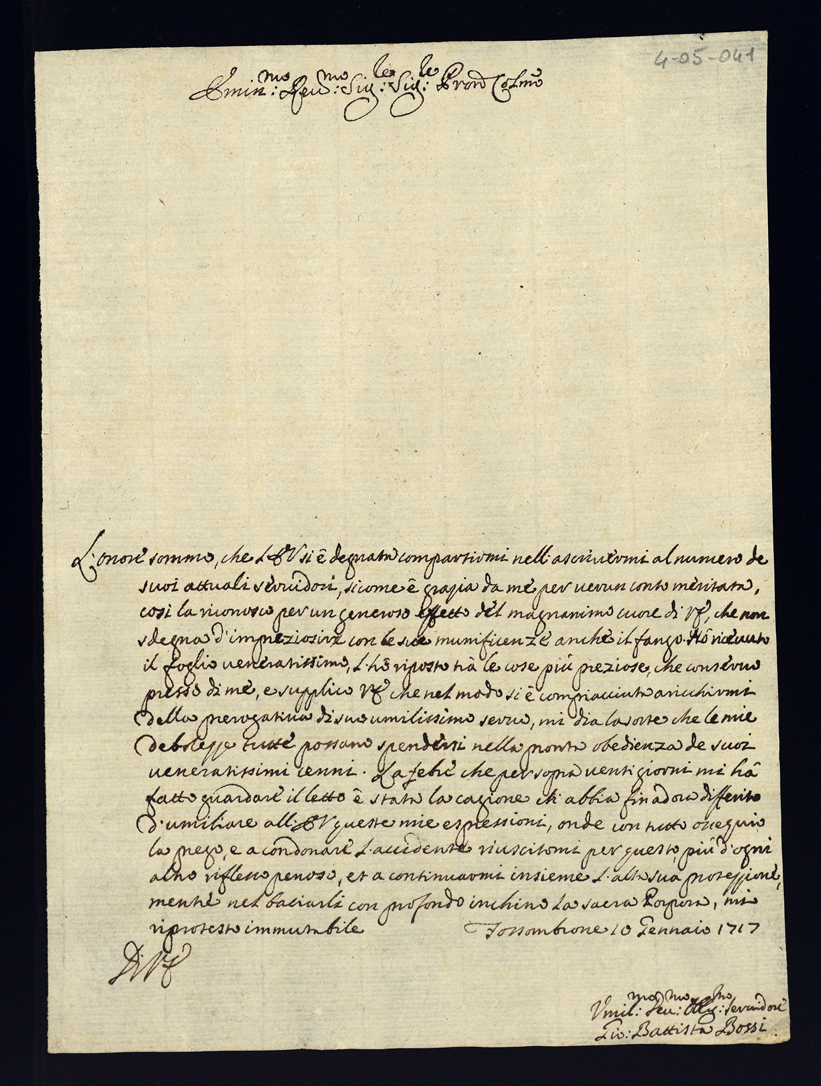 4-05-041
Emin:mo Reu:mo Sig:re Sig:re Pron Colmo
L'onore sommo, che l'EV si è degnata compartirmi nell'ascriuermi al numero de
suoi attuali seruidori, sicome è grazia da me per uerun conto meritata,
così la riconosco per un generoso effetto del magnanimo cuore di VE, che non
sdegna d'impreziosire con le sue munificenze anche il fango. Hò riceuuto
il foglio ueneratissimo, l'hò riposto trà le cose più preziose, che conseruo
presso di me, e supplico VE che nel modo si è compiaciuta aricchirmi
della prerogatiua di suo umilissimo seruo, mi dia la sorte che le mie
debolezze tutte possano spendersi nella pronta obedienza de suoi
ueneratissimi cenni. La febre che per sopra uenti giorni mi hà
fatto guardare il letto è stata la cagione ch'abbia fin adora differito
d'umiliare all'EV queste mie espressioni, onde con tutto ossequio
la prego, e a condonare l'accidente riuscitomi per questo più d'ogni
altro riflesso penoso, et a continuarmi insieme l'alta sua protezzione,
mentre nel baciarli con profondo inchino la sacra Porpora, mi
riprotesto immutabile Fossombrone 10 Gennaio 1717
Di VE
Vmil:mo Deu:mo Obg:mo Seruidore
Gio: Battista Bossi